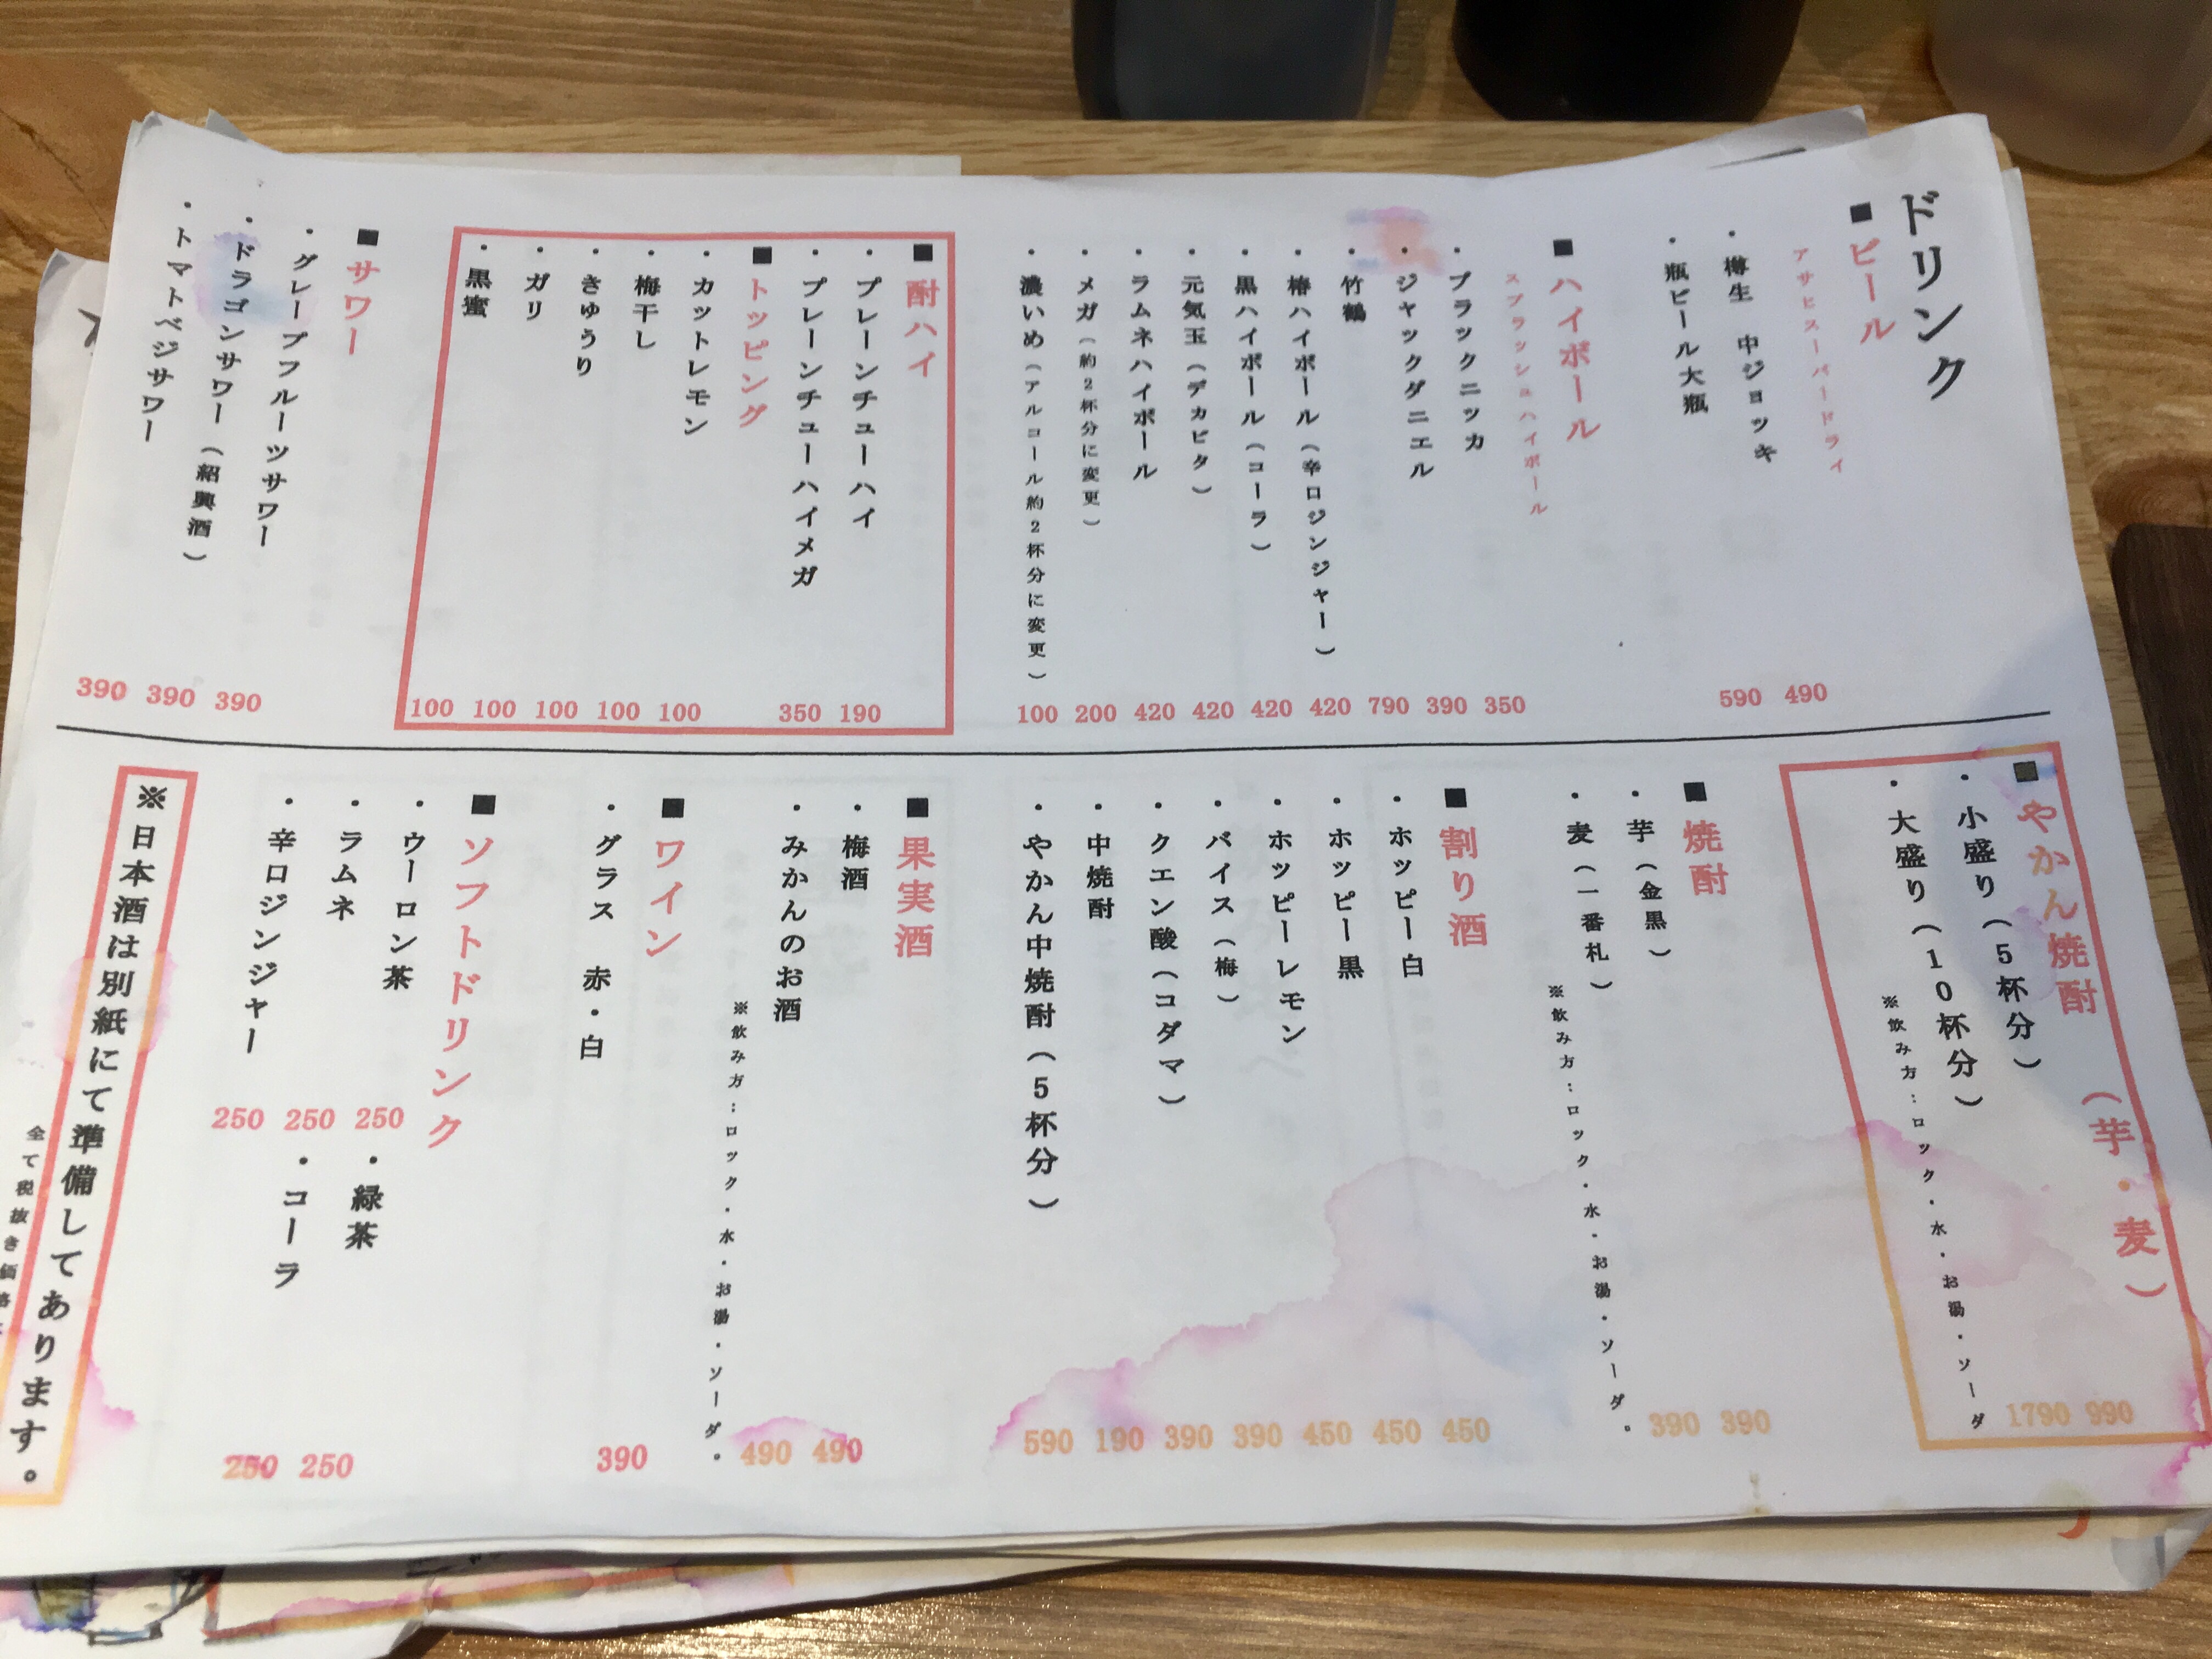 ドリンク
■ビール
アサヒスーパードライ
・樽生 中ジョッキ 490
・瓶ビール大瓶 590
■ハイボール
スプラッシュハイボール
・ブラックニッカ 350
・ジャックダニエル 390
・竹鶴 790
・椿ハイボール（辛口ジンジャー） 420
・黒ハイボール（コーラ） 420
・元気玉（デカビタ） 420
・ラムネハイボール 420
・メガ（約2杯分に変更） 200
・濃いめ（アルコール約2杯分に変更） 100
■酎ハイ
・プレーンチューハイ 190
・プレーンチューハイメガ 350
■トッピング
・カットレモン 100
・梅干し 100
・きゅうり 100
・ガリ 100
・黒蜜 100
■サワー
・グレープフルーツサワー 390
・ドラゴンサワー（紹興酒） 390
・トマトベジサワー 390
■やかん焼酎（芋・麦）
・小盛り（5杯分） 990
・大盛り（10杯分） 1790
※飲み方：ロック・水・お湯・ソーダ
■焼酎
・芋（金黒） 390
・麦（一番札） 390
※飲み方：ロック・水・お湯・ソーダ。
■割り酒
・ホッピー白 450
・ホッピー黒 450
・ホッピーレモン 450
・バイス（梅） 390
・クエン酸（コダマ） 390
・中焼酎 190
・やかん中焼酎（5杯分） 590
■果実酒
・梅酒 490
・みかんのお酒 490
※飲み方：ロック・水・お湯・ソーダ。
■ワイン
・グラス 赤・白 390
■ソフトドリンク
・ウーロン茶 250
・ラムネ 250
・辛口ジンジャー 250
・緑茶 250
・コーラ 250
※日本酒は別紙にて準備してあります。
全て税抜き価格